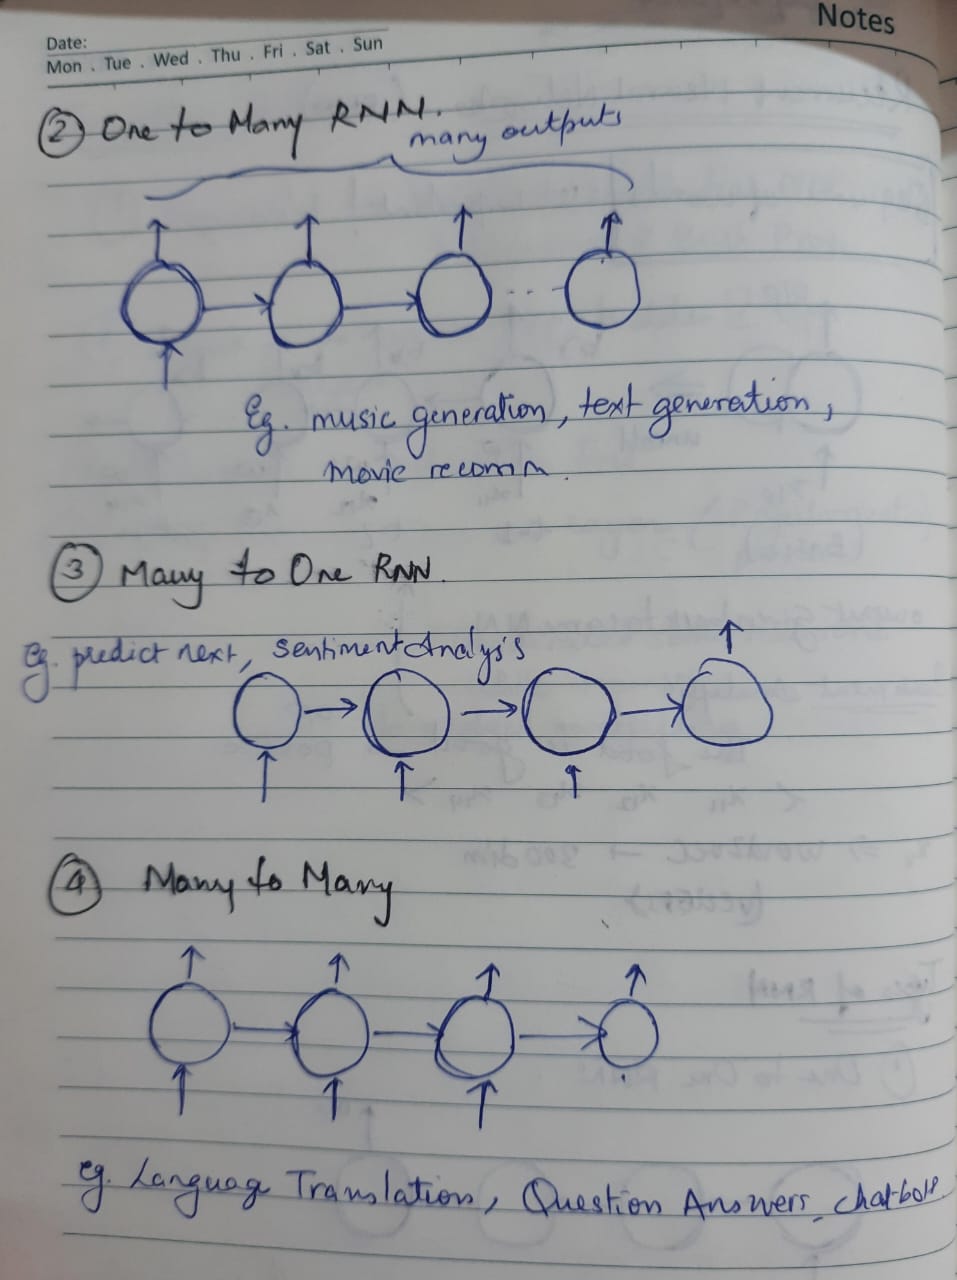 Notes
Date:
Mon . Tue . Wed . Thu . Fri . Sat . Sun
② One to Many RNN.
many outputs
Eg. music generation, text generation,
movie recomm.
③ Many to One RNN.
Eg. predict next, Sentiment Analysis
④ Many to Many
eg. Language Translation, Question Answers, chatbots.